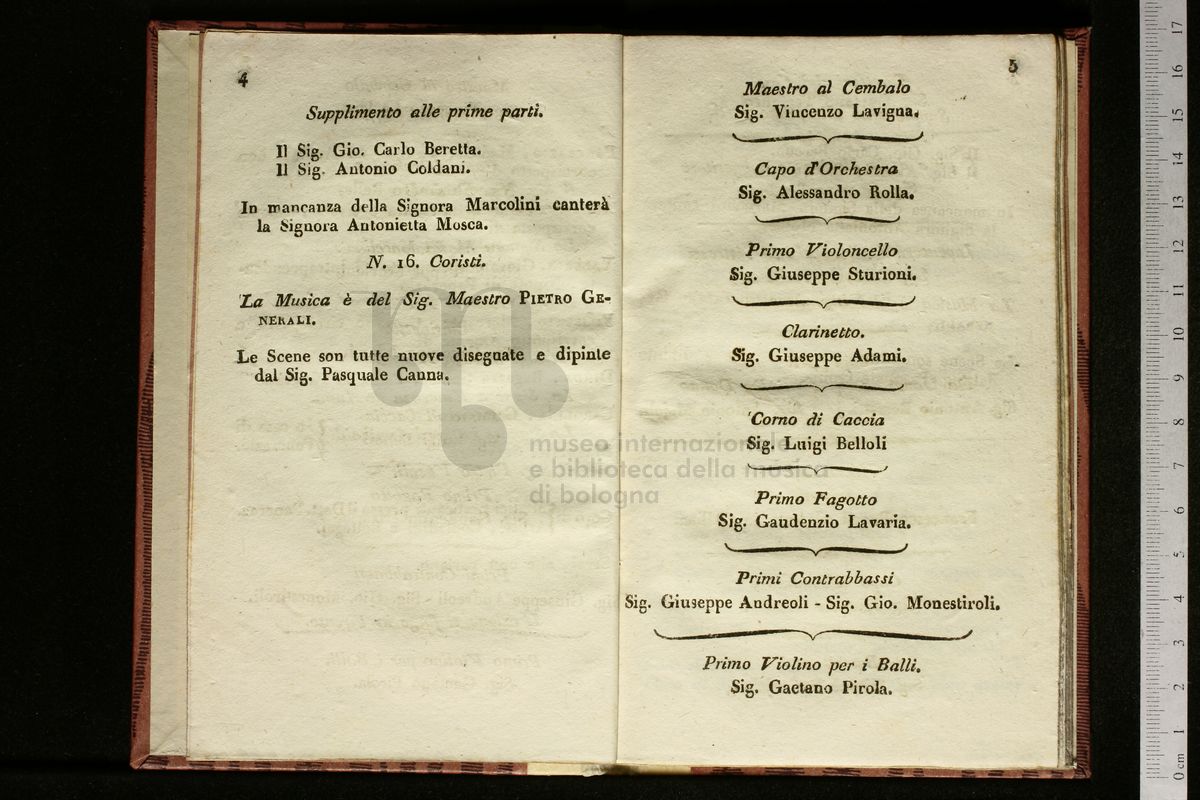 4
Supplimento alle prime parti.
Il Sig. Gio. Carlo Beretta.
Il Sig. Antonio Coldani.
In mancanza della Signora Marcolini canterà
la Signora Antonietta Mosca.
N. 16. Coristi.
La Musica è del Sig. Maestro PIETRO GE-
NERALI.
Le Scene son tutte nuove disegnate e dipinte
dal Sig. Pasquale Canna.
5
Maestro al Cembalo
Sig. Vincenzo Lavigna.
Capo d'Orchestra
Sig. Alessandro Rolla.
Primo Violoncello
Sig. Giuseppe Sturioni.
Clarinetto.
Sig. Giuseppe Adami.
Corno di Caccia
Sig. Luigi Belloli
Primo Fagotto
Sig. Gaudenzio Lavaria.
Primi Contrabbassi
Sig. Giuseppe Andreoli - Sig. Gio. Monestiroli.
Primo Violino per i Balli.
Sig. Gaetano Pirola.
museo internazionale
e biblioteca della musica
di bologna
0 cm 1 2 3 4 5 6 7 8 9 10 11 12 13 14 15 16 17